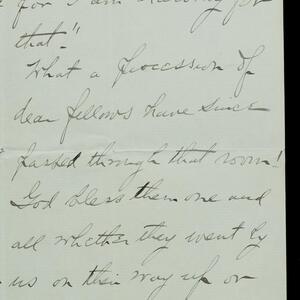 for I am
that!"
What a procession of
dear fellows have since
passed through that room!
God bless them one and
all whether they went by
us on their way up or